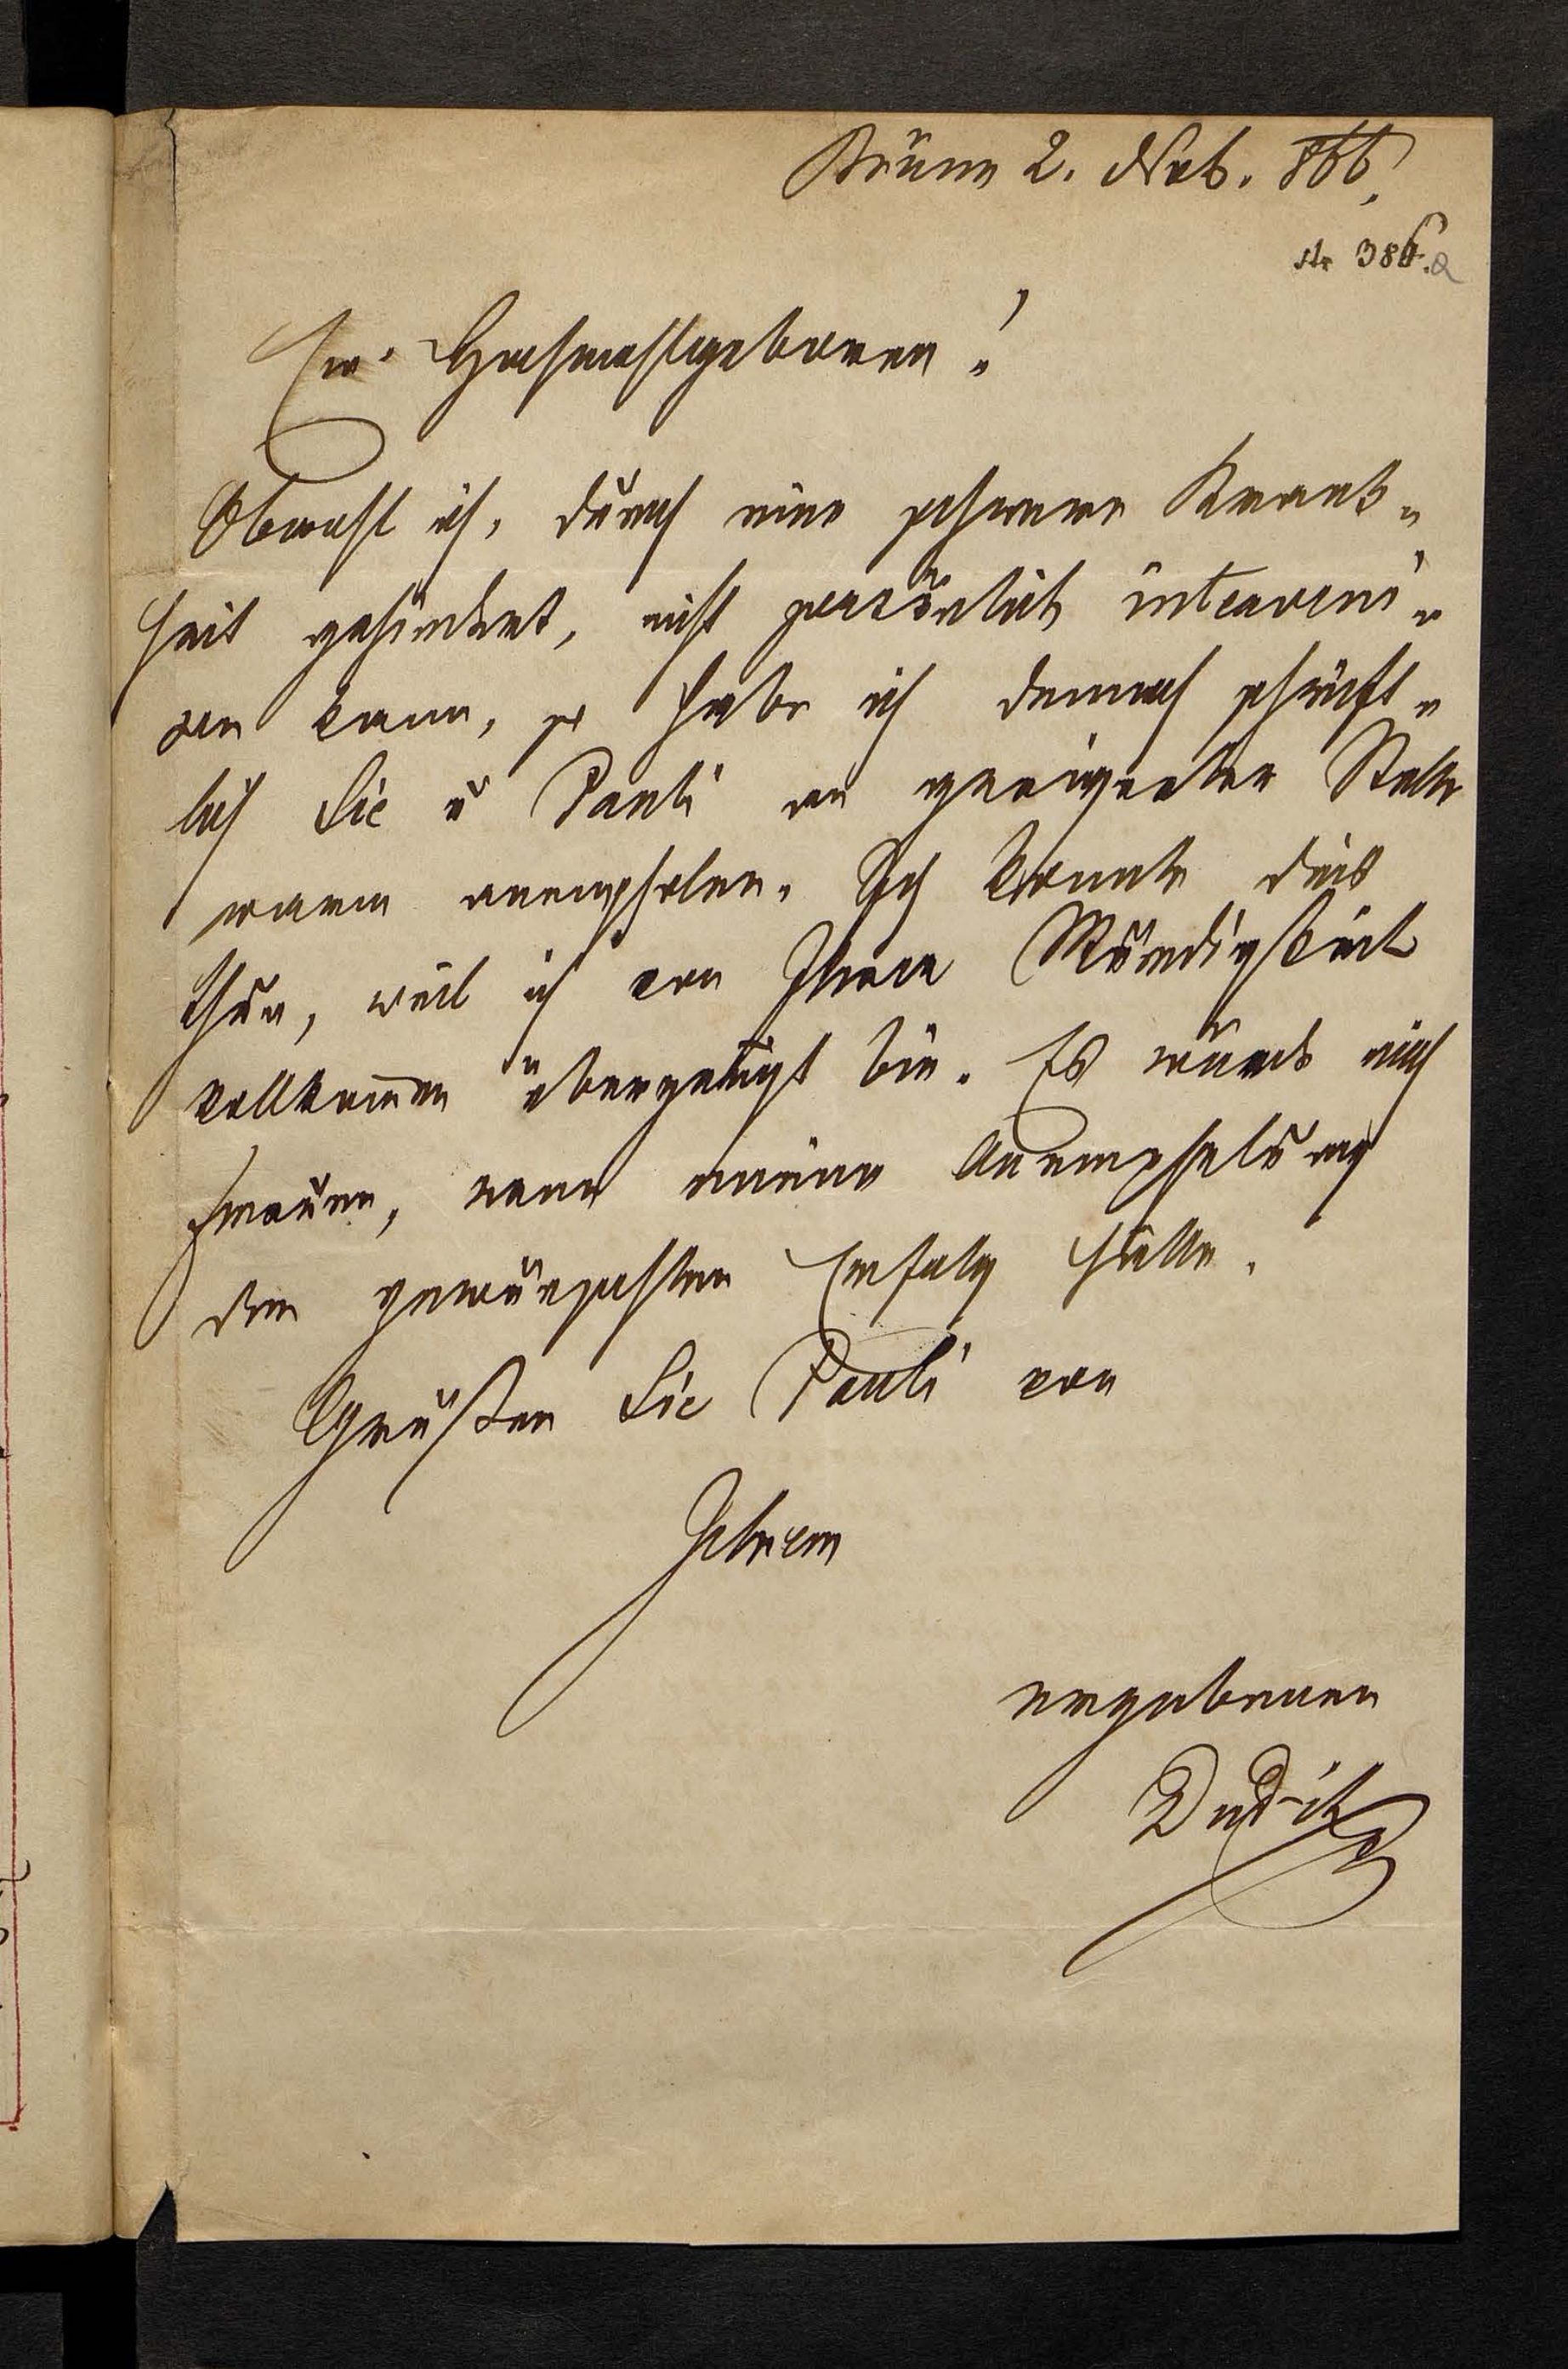 Brünn 2. Nov. 866.
Nr 386.a
Ew. Hochwohlgeboren!
Obwohl ich, durch eine schwere Krank-
heit gehindert, nicht persönlich interveni-
ren kann, so habe ich dennoch schrift-
lich Sie u Pauli an geeigneter Stelle
warm anempfolen. Ich konnte dies
thun, weil ich von Ihrer Würdigkeit
vollkommen überzeugt bin. Es würde mich
freuen, wenn meine Anempfelung
den gewünschten Erfolg hätte.
Grüßen Sie Pauli von
Ihrem
ergebenen
Dudik